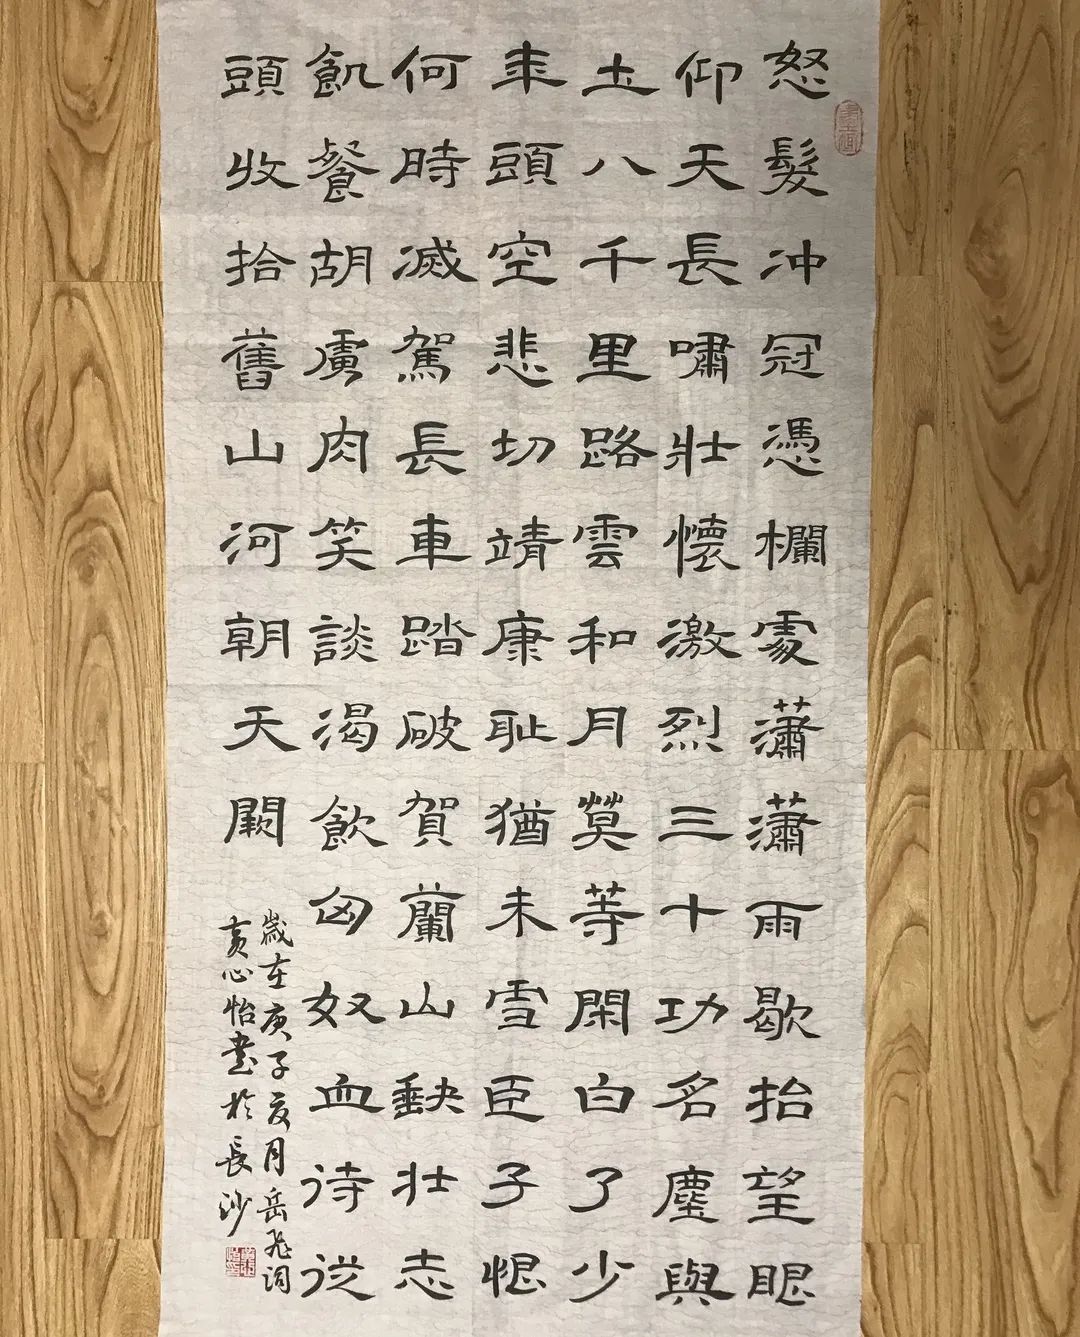 怒髮冲冠憑欄處瀟瀟雨歇抬望眼
仰天長嘯壯懷激烈三十功名塵與
土八千里路雲和月莫等閑白了少
年頭空悲切靖康耻猶未雪臣子恨
何時滅駕長車踏破賀蘭山缺壯志
飢餐胡虜肉笑談渴飲匈奴血待從
頭收拾舊山河朝天闕
歲在庚子亥月岳飛詞
黃心怡書於長沙